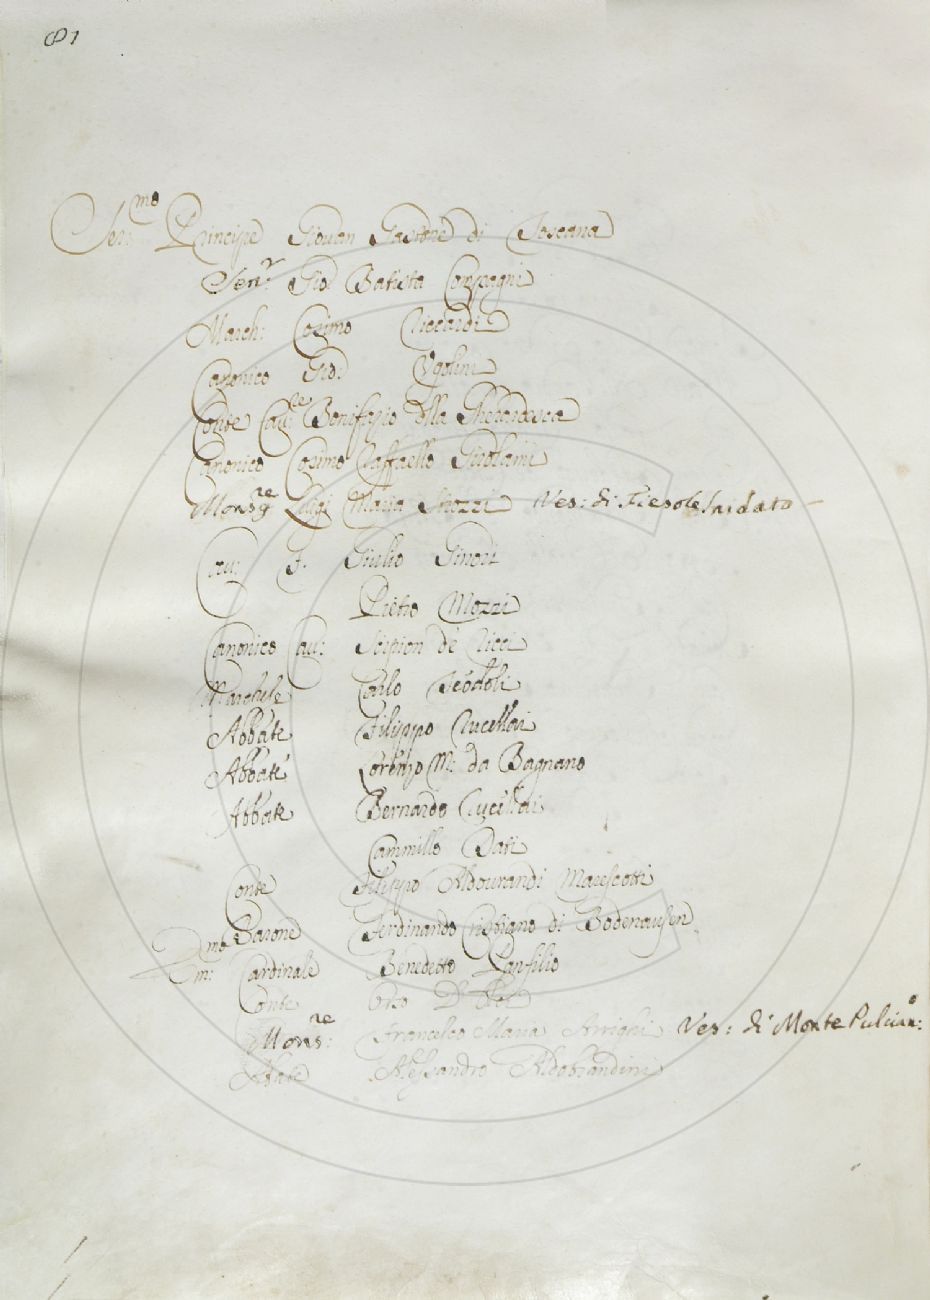 81
Ser.mo Principe Giovan Gastone di Toscana
Sen.r Gio Batista Compagni
March: Cosimo Riccardi
Canonico Gio: Ugolini
Conte Cau:re Bonifazio della Gherardesca
Canonico Cosimo Raffaello Girolami
Monsg.re Luigi Maria Strozzi Ves: di Fiesole
Cau: F. Giulio Ginori
Pietro Mozzi
Canonico Cau: Scipion de Ricci
Marchese Carlo Teodoli
Abbate Filippo Rucellai
Abbate Lorenzo M: da Bagnano
Abbate Bernardo Rucellai
Cammillo Dati
Conte Filippo Aldourandi Marescotti
Barone Ferdinando di Bodenausen
Em:mo Cardinale Benedetto Panfilio
Conte Orso D'Elci
Mons:re Francesco Maria Arrighi Ves: di Monte Pulcian:o
Abate Alessandro Aldobrandini